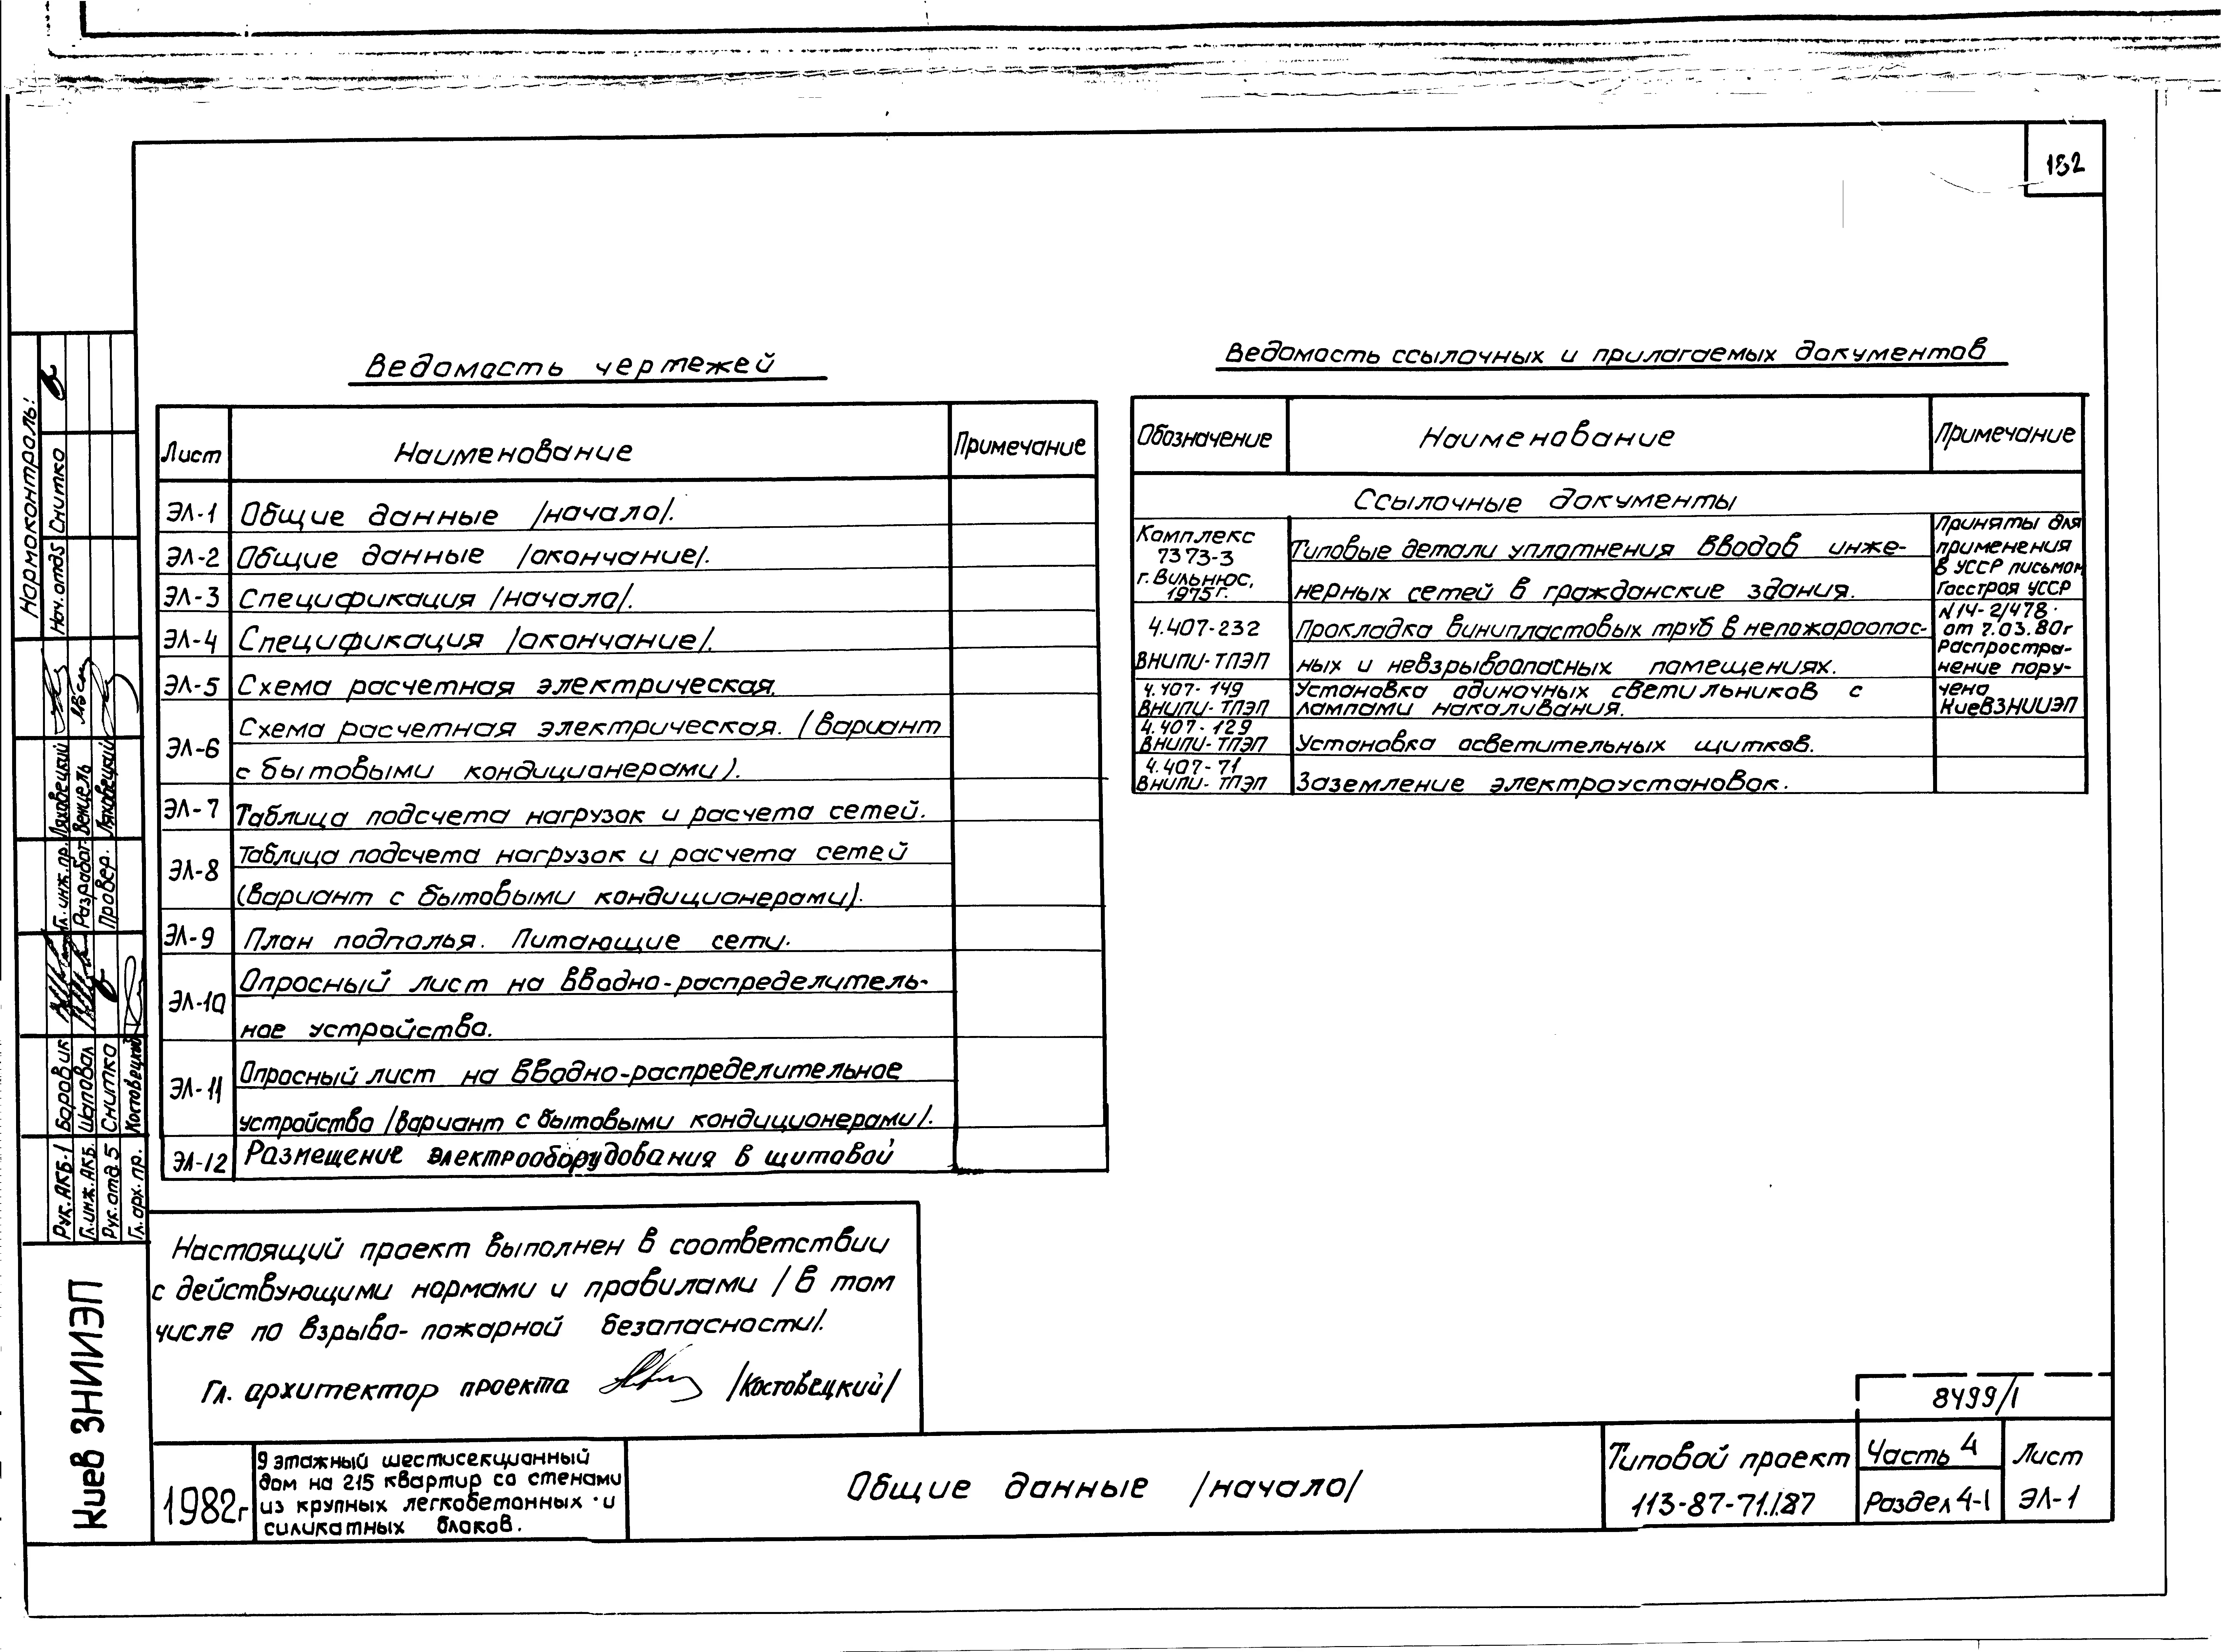 152
Ведомость чертежей
Лист Наименование Примечание
ЭЛ-1 Общие данные /начало/.
ЭЛ-2 Общие данные /окончание/.
ЭЛ-3 Спецификация /начало/.
ЭЛ-4 Спецификация /окончание/.
ЭЛ-5 Схема расчетная электрическая.
ЭЛ-6 Схема расчетная электрическая. (Вариант
с бытовыми кондиционерами).
ЭЛ-7 Таблица подсчета нагрузок и расчета сетей.
ЭЛ-8 Таблица подсчета нагрузок и расчета сетей
(Вариант с бытовыми кондиционерами).
ЭЛ-9 План подполья. Питающие сети.
ЭЛ-10 Опросный лист на вводно-распределитель-
ное устройство.
ЭЛ-11 Опросный лист на вводно-распределительное
устройство /Вариант с бытовыми кондиционерами/.
ЭЛ-12 Размещение электрооборудования в щитовой
Ведомость ссылочных и прилагаемых документов
Обозначение Наименование Примечание
Ссылочные документы
Комплекс
7373-3
г. Вильнюс,
1975г.
Типовые детали уплотнения вводов инже-
нерных сетей в гражданские здания.
4.407-232
ВНИПИ-ТПЭП
Прокладка винипластовых труб в непожароопас-
ных и невзрывоопасных помещениях.
4.407-149
ВНИПИ-ТПЭП
Установка одиночных светильников с
лампами накаливания.
4.407-129
ВНИПИ-ТПЭП
Установка осветительных щитков.
4.407-71
ВНИПИ-ТПЭП
Заземление электроустановок.
Приняты для
применения
в УССР письмом
Госстроя УССР
N14-2/478
от 7.03.80г
Распростра-
нение пору-
чено
КиевЗНИИЭП
Настоящий проект выполнен в соответствии
с действующими нормами и правилами /в том
числе по взрыво-пожарной безопасности/.
Гл. архитектор проекта /Костовецкий/
Нормоконтроль:
Нач. отд5 Снитко
Гл. инж. пр. Ляховецкий
Разработ. Венцель
Провер. Ляховецкий
Рук. АКБ-1 Боровик
Гл. инж. АКБ. Шаповал
Рук. отд 5 Снитко
Гл. арх. пр. Костовецкий
Киев ЗНИИЭП
1982г
9 этажный шестисекционный
дом на 215 квартир со стенами
из крупных легкобетонных и
силикатных блоков.
Общие данные /начало/
Типовой проект
113-87-71.1.87
8499/1
Часть 4
Раздел 4-1
Лист
ЭЛ-1